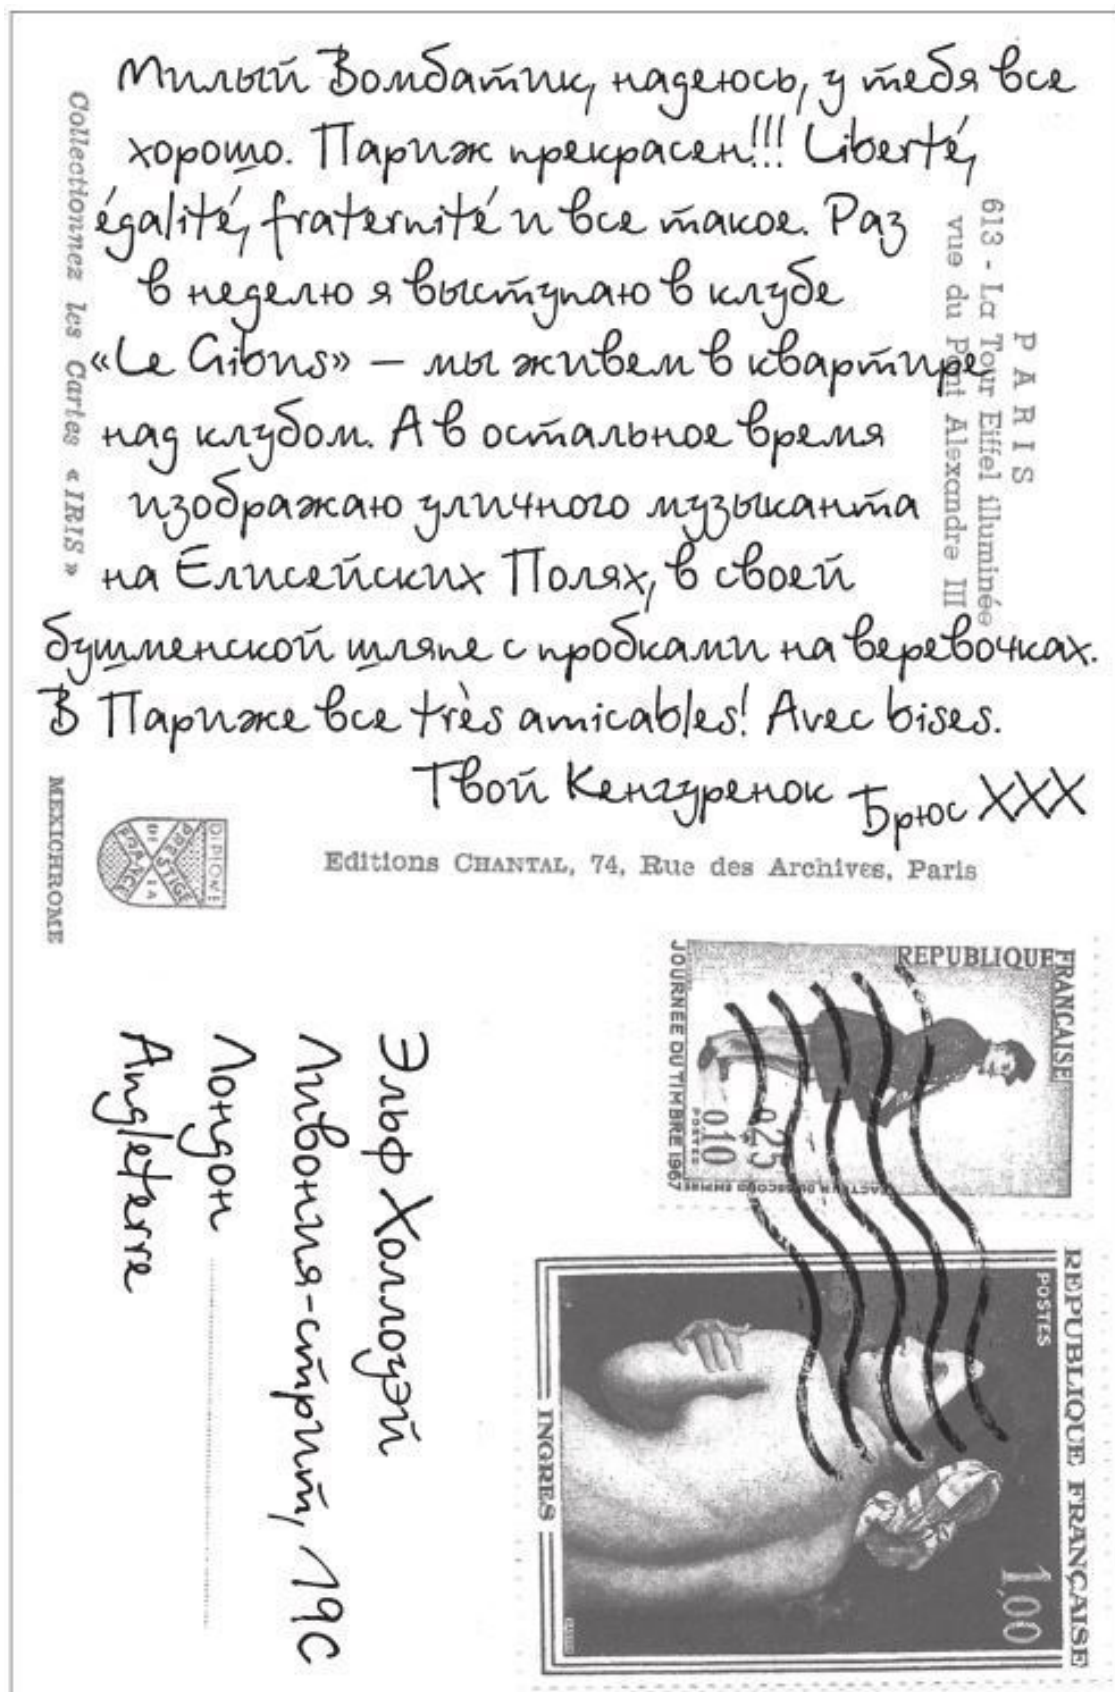 Милый Вомбатик, надеюсь, у тебя все
хорошо. Париж прекрасен!!! Liberté,
égalité, fraternité и все такое. Раз
в неделю я выступаю в клубе
«Le Gibus» — мы живем в квартире
над клубом. А в остальное время
изображаю уличного музыканта
на Елисейских Полях, в своей
бушменской шляпе с пробками на веревочках.
В Париже все très amicables! Avec bises.
Твой Кенгуренок Брюс XXX
Collectionnez les Cartes «IRIS»
PARIS
613 - La Tour Eiffel illuminée
vue du Pont Alexandre III
MEXICHROME
DIPLOME
DE PRESTIGE
DE LA
FRANCE
Editions CHANTAL, 74, Rue des Archives, Paris
Эльф Холлоуэй
Ливония-стрит, 19С
Лондон
Angleterre
REPUBLIQUE FRANÇAISE
JOURNEE DU TIMBRE 1967
0,25
0,10
POSTES
FACTEUR DU SECOND EMPIRE
REPUBLIQUE FRANÇAISE
POSTES
1,00
INGRES